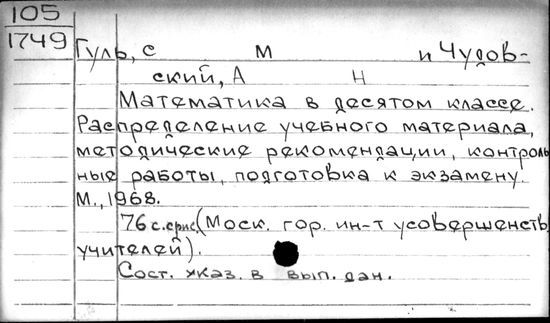 105
1749
Гуль, С М и Чудов-
ский, А Н
Математика в десятом классе.
Распределение учебного материала,
методические рекомендации, контроль
ные работы, подготовка к экзамену.
М., 1968.
76 с. (Моск. гор. ин-т усовершенств.
учителей).
Сост. указ. в вып. дан.